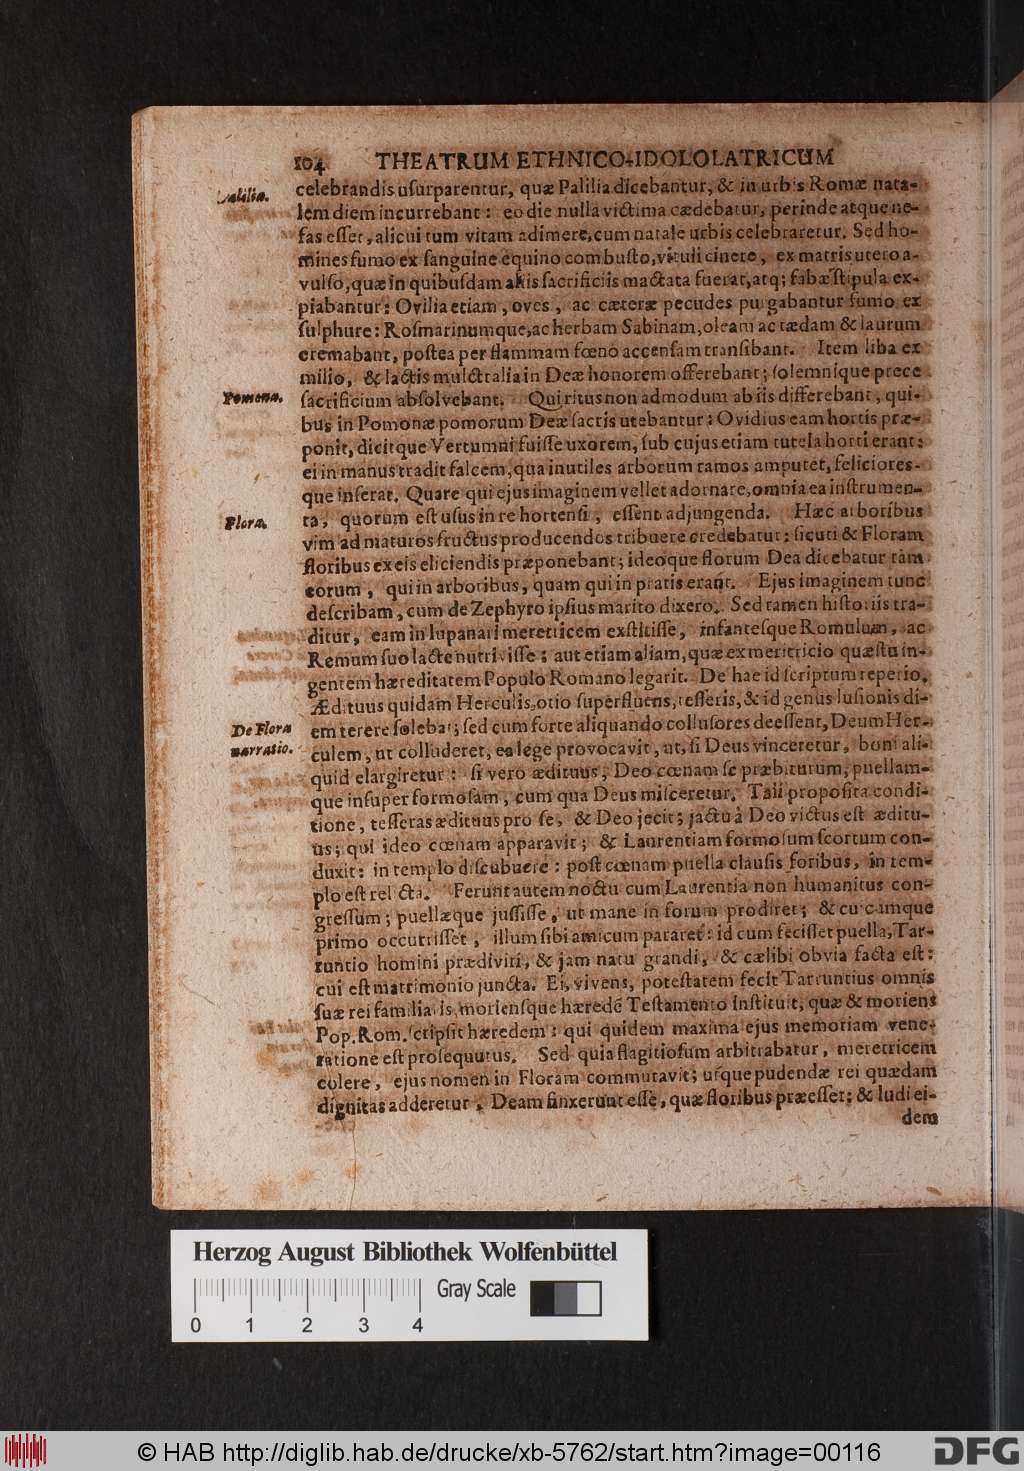 104 THEATRUM ETHNICO-IDOLOLATRICUM
Palilia.
celebrandis usurparentur, quæ Palilia dicebantur, & in urbis Romæ nata-
lem diem incurrebant: eo die nulla victima cædebatur, perinde atque ne-
fas esset, alicui tum vitam adimere, cum natale urbis celebraretur. Sed ho-
mines fumo ex sanguine equino combusto, vituli cinere, ex matris utero a-
vulso, quæ in quibusdam aliis sacrificiis mactata fuerat, atq; fabæ stipula ex-
piabantur: Ovilia etiam, oves, ac cæteræ pecudes purgabantur fumo ex
sulphure: Rosmarinumque, ac herbam Sabinam, oleam ac tædam & laurum
cremabant, postea per flammam fœno accensam transibant. Item liba ex
milio, & lactis mulctralia in Deæ honorem offerebant; solemnique prece
Pomona.
sacrificium absolvebant. Qui ritus non admodum ab iis differebant, qui-
bus in Pomonæ pomorum Deæ sacris utebantur: Ovidius eam hortis præ-
ponit, dicitque Vertumni fuisse uxorem, sub cujus etiam tutela horti erant:
ei in manus tradit falcem, qua inutiles arborum ramos amputet, feliciores-
que inserat. Quare qui ejus imaginem vellet adornare, omnia ea instrumen-
Flora.
ta, quorum est usus in re hortensi, essent adjungenda. Hæc arboribus
vim ad maturos fructus producendos tribuere credebatur: sicuti & Floram
floribus ex eis eliciendis præponebant; ideoque florum Dea dicebatur tam
eorum, qui in arboribus, quam qui in pratis erant. Ejus imaginem tunc
describam, cum de Zephyro ipsius marito dixero. Sed tamen historiis tra-
ditur, eam in lupanari meretricem exstitisse, infantesque Romulum, ac
Remum suo lacte nutrivisse: aut etiam aliam, quæ ex meritricio quæstu in-
gentem hæreditatem Populo Romano legarit. De hae id scriptum reperio.
Ædituus quidam Herculis, otio superfluens, tesseris, & id genus lusionis di-
De Flora
em terere solebat; sed cum forte aliquando collusores deessent, Deum Her-
narratio.
culem, ut colluderet, ea lege provocavit, ut, si Deus vinceretur, boni ali-
quid elargiretur: si vero ædituus, Deo cœnam se præbiturum, puellam-
que insuper formosam, cum qua Deus misceretur. Tali proposita condi-
tione, tesseras ædituus pro se, & Deo jecit; jactu à Deo victus est æditu-
us; qui ideo cœnam apparavit; & Laurentiam formosum scortum con-
duxit: in templo discubuere: post cœnam puella clausis foribus, in tem-
plo est relicta. Ferunt autem noctu cum Laurentia non humanitus con-
gressum; puellæque jussisse, ut mane in forum prodiret; & cuicumque
primo occurrisset, illum sibi amicum pararet: id cum fecisset puella, Tar-
runtio homini prædiviti, & jam natu grandi, & cælibi obvia facta est:
cui est matrimonio juncta. Ei, vivens, potestatem fecit Tarruntius omnis
suæ rei familiaris, moriensque hæredē Testamento instituit, quæ & moriens
Pop. Rom. scripsit hæredem: qui quidem maxima ejus memoriam vene-
ratione est prosequutus. Sed quia flagitiosum arbitrabatur, meretricem
colere, ejus nomen in Floram commutavit; utque pudendæ rei quædam
dignitas adderetur, Deam finxerunt esse, quæ floribus præesset; & ludi ei-
dem
Herzog August Bibliothek Wolfenbüttel
Gray Scale
0 1 2 3 4
© HAB http://diglib.hab.de/drucke/xb-5762/start.htm?image=00116
DFG